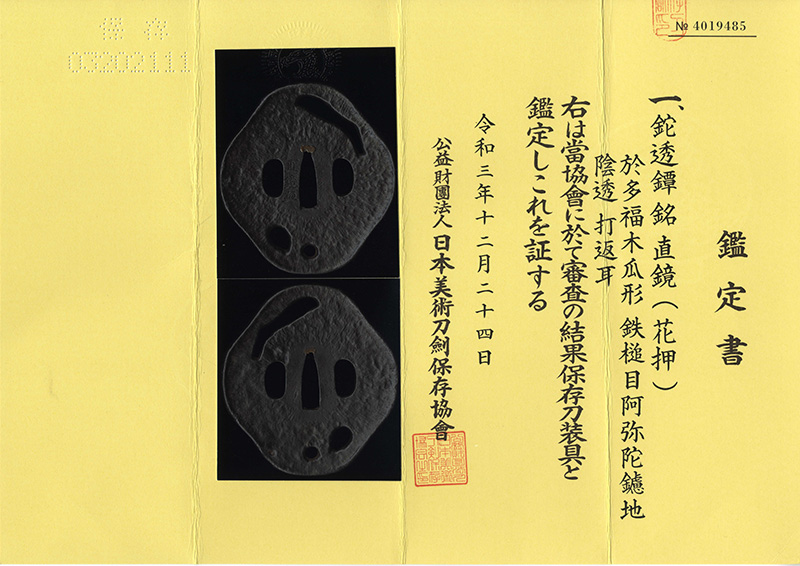 鑑定書
№ 4019485
一、鉈透鐔 銘 直鏡(花押)
於多福木瓜形 鉄槌目阿弥陀鑢地
陰透 打返耳
右は當協會に於て審査の結果保存刀装具と
鑑定しこれを証する
令和三年十二月二十四日
公益財團法人 日本美術刀劍保存協會
保存
03202111